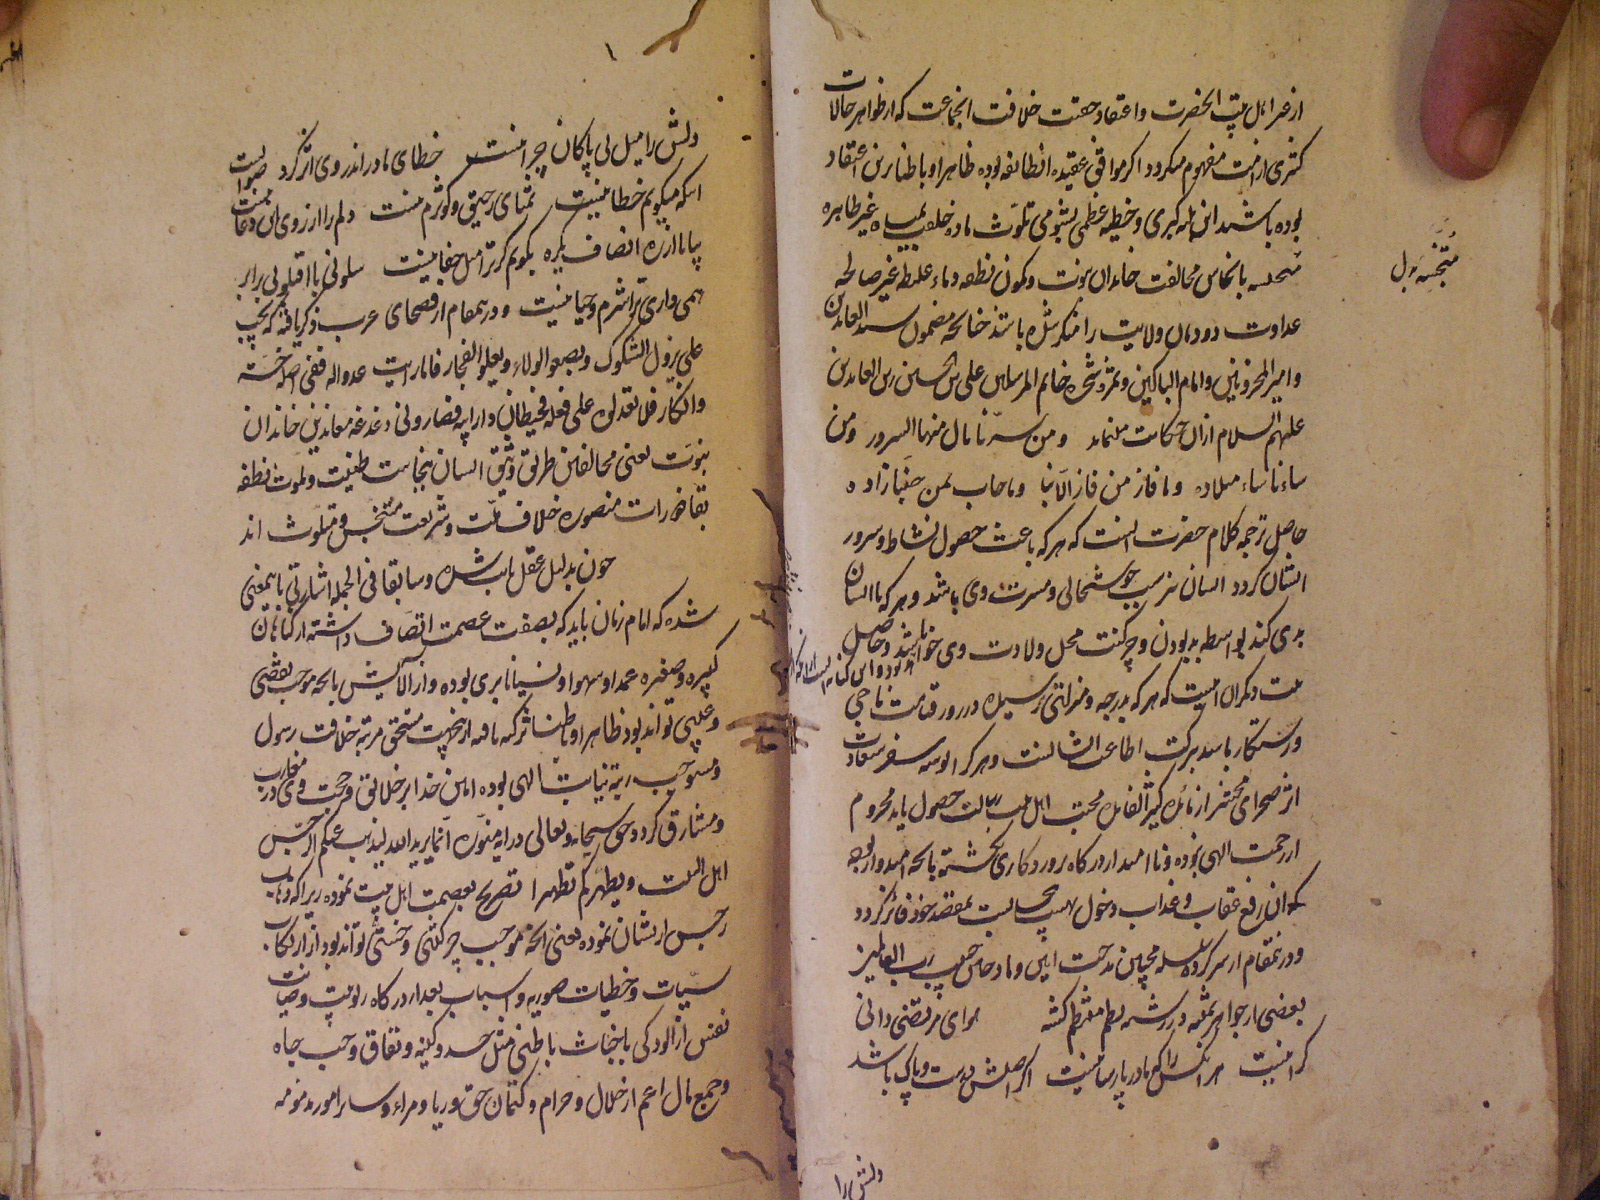 از غیر اهل بیت الحضرت و اعتقاد حقیت خلافت انجماعت که از ظواهر حالات
کثری از امت مفهوم میکردد اکر موافق عقیده انطائفه بوده ظاهرا و باطنا برین اعتقاد
بوده باشند این کبری و خطیه عظمی بشومی تلوث ماده خلقت بمیاه غیر طاهره
متنجسه بانجاس مخالفت خاندان نبوت و کون نطفه دماء غلیظه غیر صالحه
متنجسه بول
عداوت دودمان ولایت را منکر شده باشند چنانچه مضمون سید العابدین
و امیر المحزونین و امام الباکین و ثمره شجره خاتم المرسلین علی بن الحسین زین العابدین
علیهم السلام ازان حکایت مینماید و من سرنا نال منها السرور و من
ساءنا ساء میلاده وما فاز من فاز الا بنا وما خاب من حبنا زاده
حاصل ترجمه کلام حضرت اینست که هر که باعث حصول نشاط و سرور
ایشان کردد ایشان نیز سبب خوشحالی و مسرت وی باشد و هر که با ایشان
بدی کند بواسطه بد بودن و چرکنت محل ولادت وی خواهد بود و حاصل
بیت دیکران اینست که هر که بدرجه و منزلتی رسیده در روز قیامت ناجی
و رستکار باشد ببرکت اطاعت ایشانست و هر کرا توشه سفر سعادت
اثر صحرای محشر از مائده کثیر الفایده محبت اهل بیت رسالت حصول نیابد محروم
از رحمت الهی بوده و ناامید از درکاه پروردکاری کشته بانچه امیدوار بوده
که ان رفع عقاب و عذاب و دخول بهشت است بمقصد خود فائز نکردد
و درینمقام از سر کرده سلسله محبین مدحت ایین و مادحین حبیب رب العالمین
بعضی از جواهر ثمینه در رشته نظم منتظم کشته هوای مرتضی دانی
کرا نیست هر آنکس را که مادر پارسا نیست اکر اصلش درست و پاک باشد
دلش را
۱
دلش را میل بی پاکان چرا نیست خطای مادر اندر وی اثر کرد صوابست
اینکه میکویم خطا نیست تمنای رحیق و کوثرم نیست دلم را ارزوی این و ان نیست
بیا ما از ره انصاف بکیره بکویم کر ترا میل جفا نیست سلونی با اقیلونی برابر
همی داری ترا شرم و حیا نیست و درینمقام از فصحای عرب ذکر یافته که بحب
علی یزول الشکوک و یصفو الولاء و یعلو الفجار فاما رایت عدوا له ففی اصله خسته
والکار فلا تعذلوه علی فعله فحیطان دار ابیه قصار و نی دغدغه معاندین خاندان
نبوت یعنی مخالفین طریق وثیق ایشان بنجاست طینت و تلوث نطفه
بقاذورات منصوره خلاف ملت و شریعت متنجس و متلوث اند
چون بدلیل عقل ثابت شده و سابقا فی الجمله اشارتی باینمعنی
شده که امام زمان باید که بصفت عصمت اتصاف داشته از کناهان
کبیره و صغیره عمدا و سهوا و نسیانا بری بوده و از الایش بانچه موجب نقصی
و عیبی تواند بود ظاهرا و باطنا تزکیه یافته ازینجهت مستحق مرتبه خلافت رسول
و مستوجب رتبه نیابت الهی بوده امین خدا بر خلائق و حجت وی در مغارب
و مشارق کردد و حق سبحانه و تعالی در ایه منوره انما یرید الله لیذهب عنکم الرجس
اهل البیت و یطهرکم تطهیرا تصریح بعصمت اهل بیت نموده زیرا که ذهاب
رجس از ایشان نموده یعنی انچه موجب چرکنتی و خبثی تواند بود از ارتکاب
سیئات و خطیات صوریه و اسباب بعد از درکاه ربوبیت و صیانت
نفس از الودکی باخباث باطنی مثل حسد و کینه و نفاق و حب جاه
و جمع مال اعم از حلال و حرام و کتمان حق و ریا و مراء و سایر امور مذمومه